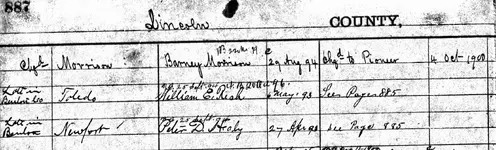 887
Lincoln COUNTY,
Morrison Barney Morrison 29 Aug 94 Chgd to Pioneer 4 Oct 1900
Lots in
Benton Co Toledo William E. Rish May 93 See Page 885
Lots in
Benton Newport Peter D. Healy 27 Apr 93 see Page 885